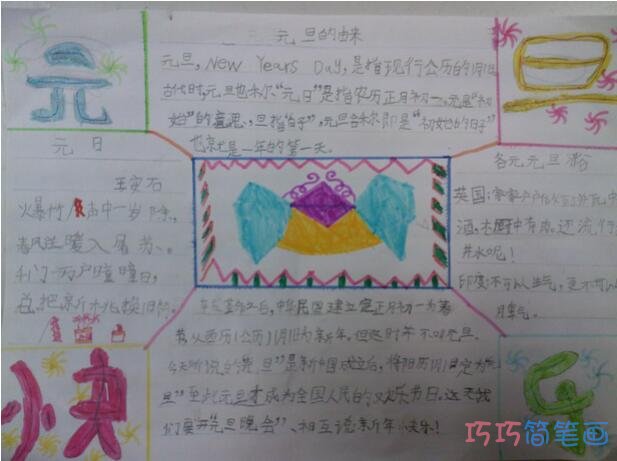 元
旦
小
报
元旦的由来
元旦, New Years Day, 是指现行公历的1月1日
古代时,元旦也称"元日"是指农历正月初一。元是"初
始"的意思,旦指"日子",元旦合称即是"初始的日子"
也就是一年的第一天。
元日
王安石
火暴竹声中一岁除,
春风送暖入屠苏、。
千门万户曈曈日,
总把新桃换旧符。
各元元旦
英国:家家户户
酒,木厨中有肉。还流行
井水呢!
印度:不可以生气,更不可以
后,中华民国建立定正月初一为春
节,从西历(公历)1月1日为新年。但这时并不叫元旦。
今天所说的元旦"是新中国成立后,将阳历1月1日定为"元
旦"至此元旦才成为全国人民的欢乐节日。这天我
们要开"元旦晚会"、相互说新年快乐!
巧巧简笔画